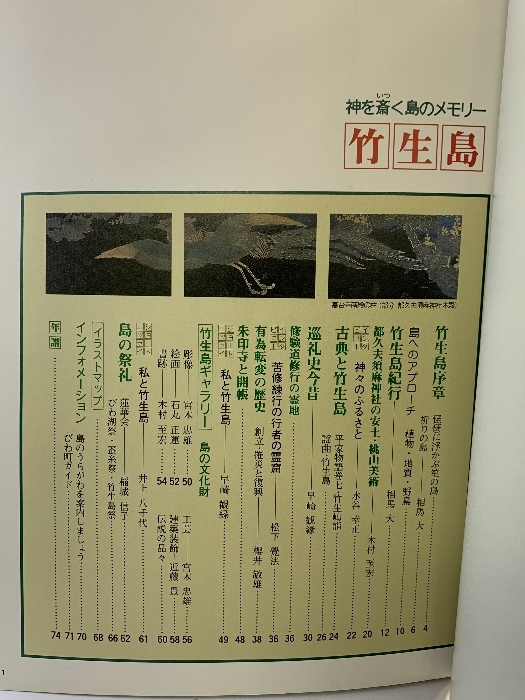 神を斎く島のメモリー
いつ
竹生島
竹生島序章
琵琶に浮かぶ竜の島 4
祈りの島 相馬 大 6
島へのアプローチ 植物・地質・野鳥 10
竹生島紀行 相馬 大 12
都久夫須麻神社の安土・桃山美術 木村 至宏 20
神々のふるさと 22
古典と竹生島 平家物語巻七・竹生島詣 24
謡曲・竹生島 26
巡礼史今昔 早崎 観縁 30
修験道修行の霊地 36
苦修練行の行者の霊窟 松下 36
有為転変の歴史 創立・罹災と復興 敏雄 38
朱印寺と開帳 48
私と竹生島 早崎 観縁 49
竹生島ギャラリー 島の文化財
彫像 宮本 忠雄 50
絵画 石丸 正運 52
書跡 木村 至宏 54
工芸 宮本 忠雄 56
建築装飾 近藤 58
伝説の品々 60
私と竹生島 井上 八千代 61
島の祭礼 蓮華会 稲城 信子 62
びわ湖祭・三社祭・竹生島祭 66
イラストマップ 68
インフォメーション 島のうらがわを案内しましょう 70
びわ町ガイド 71
年譜 74
1